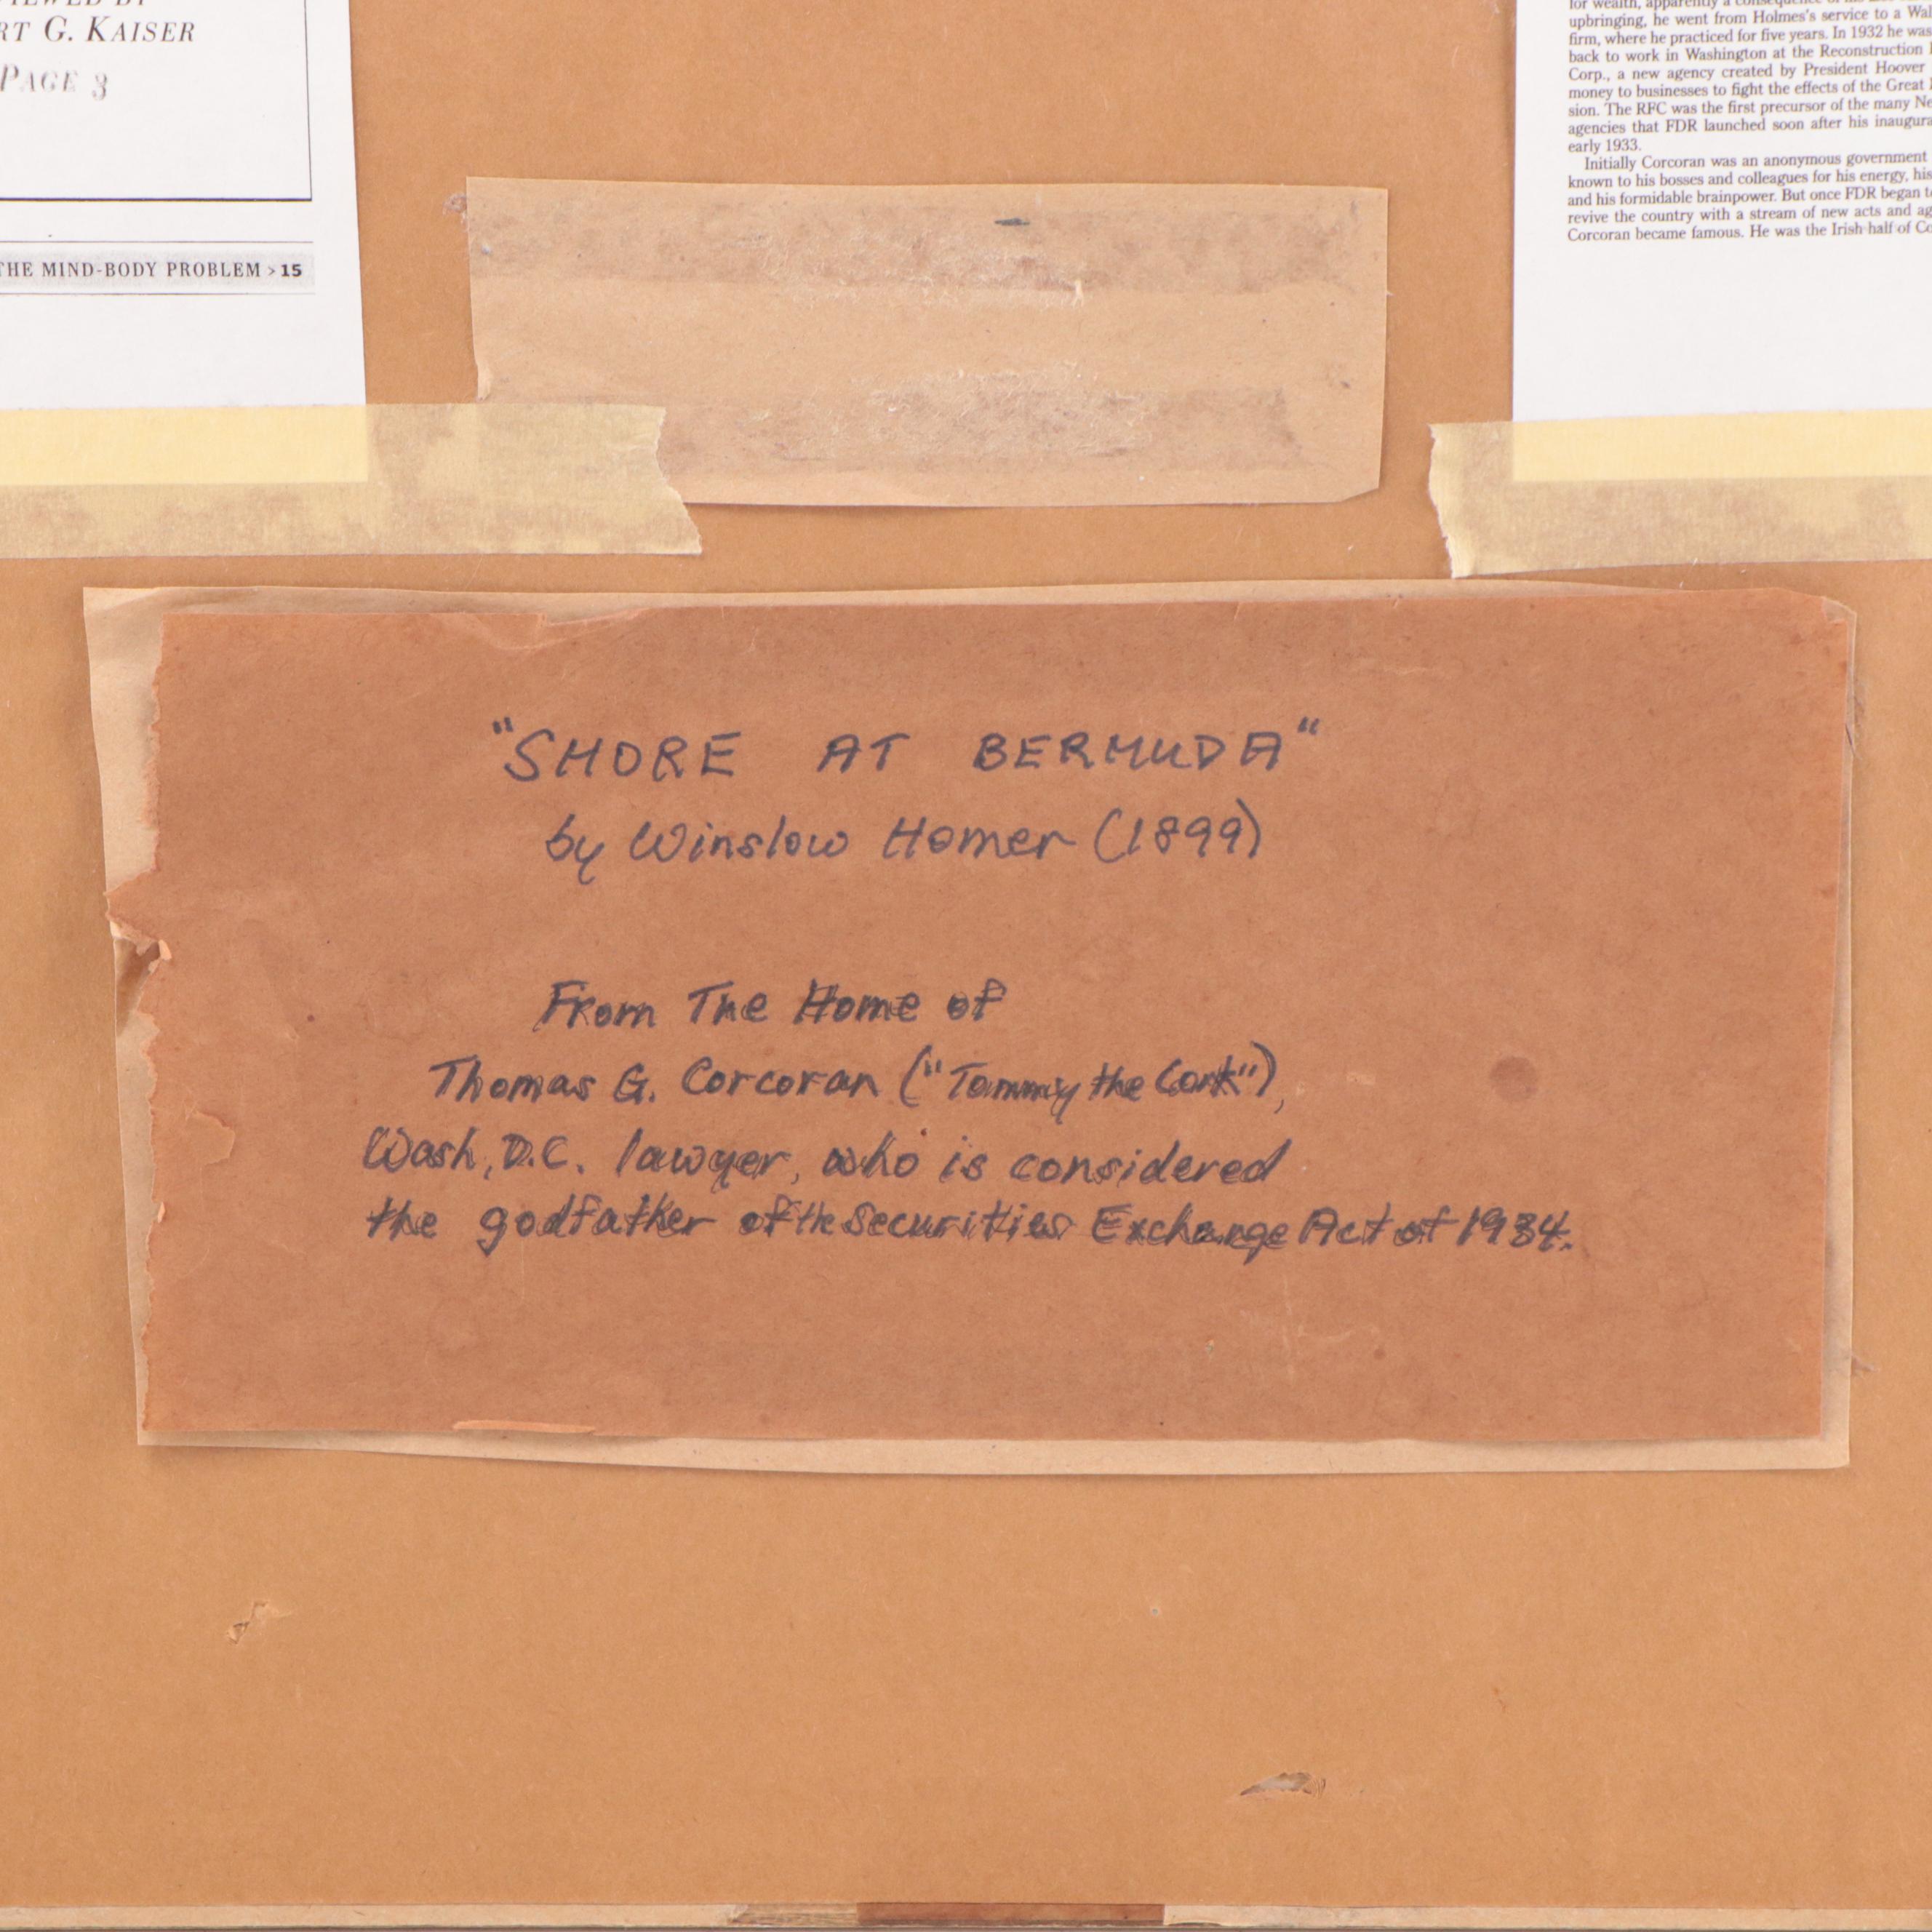 RT G. KAISER
PAGE 3
THE MIND-BODY PROBLEM > 15
upbringing, he went from Holmes's service to a Wal
firm, where he practiced for five years. In 1932 he was
back to work in Washington at the Reconstruction
Corp., a new agency created by President Hoover
money to businesses to fight the effects of the Great
sion. The RFC was the first precursor of the many Ne
agencies that FDR launched soon after his inaugura
early 1933.
Initially Corcoran was an anonymous government
known to his bosses and colleagues for his energy, his
and his formidable brainpower. But once FDR began t
revive the country with a stream of new acts and ag
Corcoran became famous. He was the Irish half of Co
"SHORE AT BERMUDA"
by Winslow Homer (1899)
From The Home of
Thomas G. Corcoran ("Tommy the Cork"),
Wash, D.C. lawyer, who is considered
the godfather of the Securities Exchange Act of 1934.